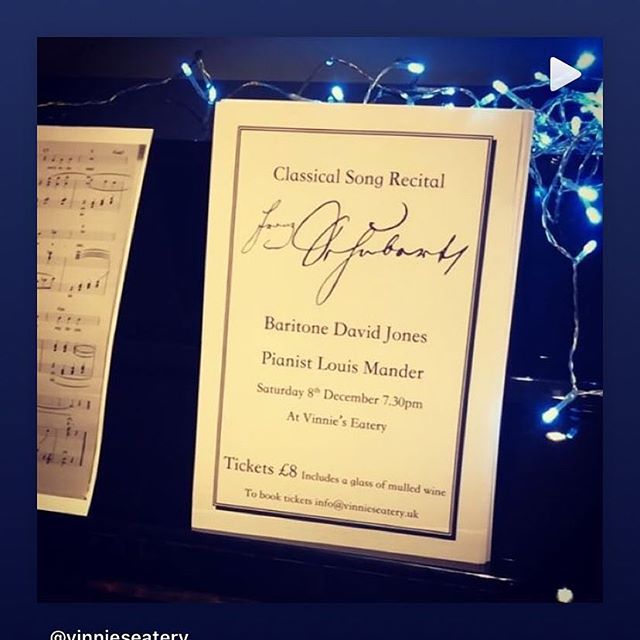 Classical Song Recital
Franz Schubert
Baritone David Jones
Pianist Louis Mander
Saturday 8th December 7.30pm
At Vinnie's Eatery
Tickets £8 Includes a glass of mulled wine
To book tickets info@vinnieseatery.uk
@vinnieseatery